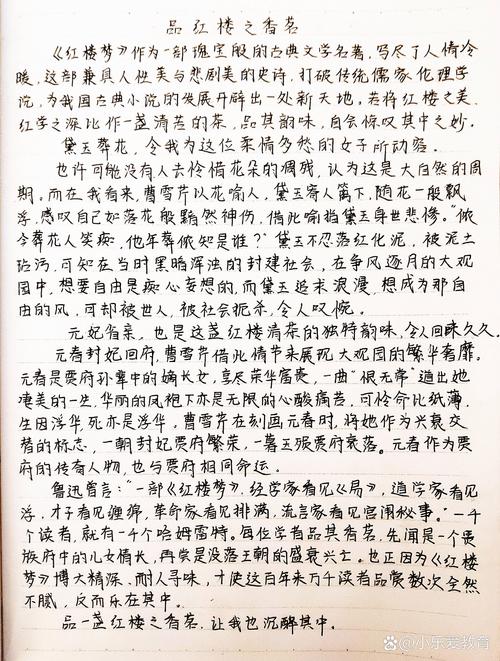 品红楼之香茗
《红楼梦》作为一部瑰宝般的古典文学名著,写尽了人情冷
暖,这部兼具人性美与悲剧美的史诗,打破传统儒家伦理学
院,为我国古典小说的发展开辟出一处新天地。若将红楼之美,
红学之深比作一盏清苦的茶,品其韵味,自会惊叹其中之妙。
黛玉葬花,令我为这位柔情多愁的女子所动容。
也许可能没有人去怜惜花朵的凋残,认为这是大自然的周
期。而在我看来,曹雪芹以花喻人,黛玉寄人篱下,随花一般飘
浮,感叹自己如落花般黯然神伤,借此喻指黛玉身世悲惨。“侬
今葬花人笑痴,他年葬侬知是谁?”黛玉不忍落红化泥,被泥土
玷污,可知在当时黑暗浑浊的封建社会,在争风逐月的大观
园中,想要自由是痴心妄想的,而黛玉追求浪漫,想成为那自
由的风,可却被世人,被社会扼杀,令人叹惋。
元妃省亲,也是这盏红楼清茶的独特韵味,令人回味久久。
元春封妃回府,曹雪芹借此情节来展现大观园的繁华奢靡。
元春是贾府孙辈中的嫡长女,享尽荣华富贵,一曲“恨无常”道出她
凄美的一生,华丽的凤袍下亦是无限的心酸痛苦,可怜命比纸薄,
生因浮华,死亦是浮华,曹雪芹在刻画元春时,将她作为兴衰交
替的标志,一朝封妃贾府繁荣,一薨玉殒贾府衰落。元春作为贾
府的传奇人物,也与贾府相同命运。
鲁迅曾言:“一部《红楼梦》,经学家看见《易》,道学家看见
浮,才子看见缠绵,革命家看见排满,流言家看见宫闱秘事。”一千
个读者,就有一千个哈姆雷特。每位学者品其香茗,先闻是一个贵
族府中的儿女情长,再尝是没落王朝的盛衰兴亡。也正因为《红楼
梦》博大精深、耐人寻味,才使这百年来万千读者品赏数次全然
不腻,反而乐在其中。
品一盏红楼之香茗,让我也沉醉其中。
小乐爱教育